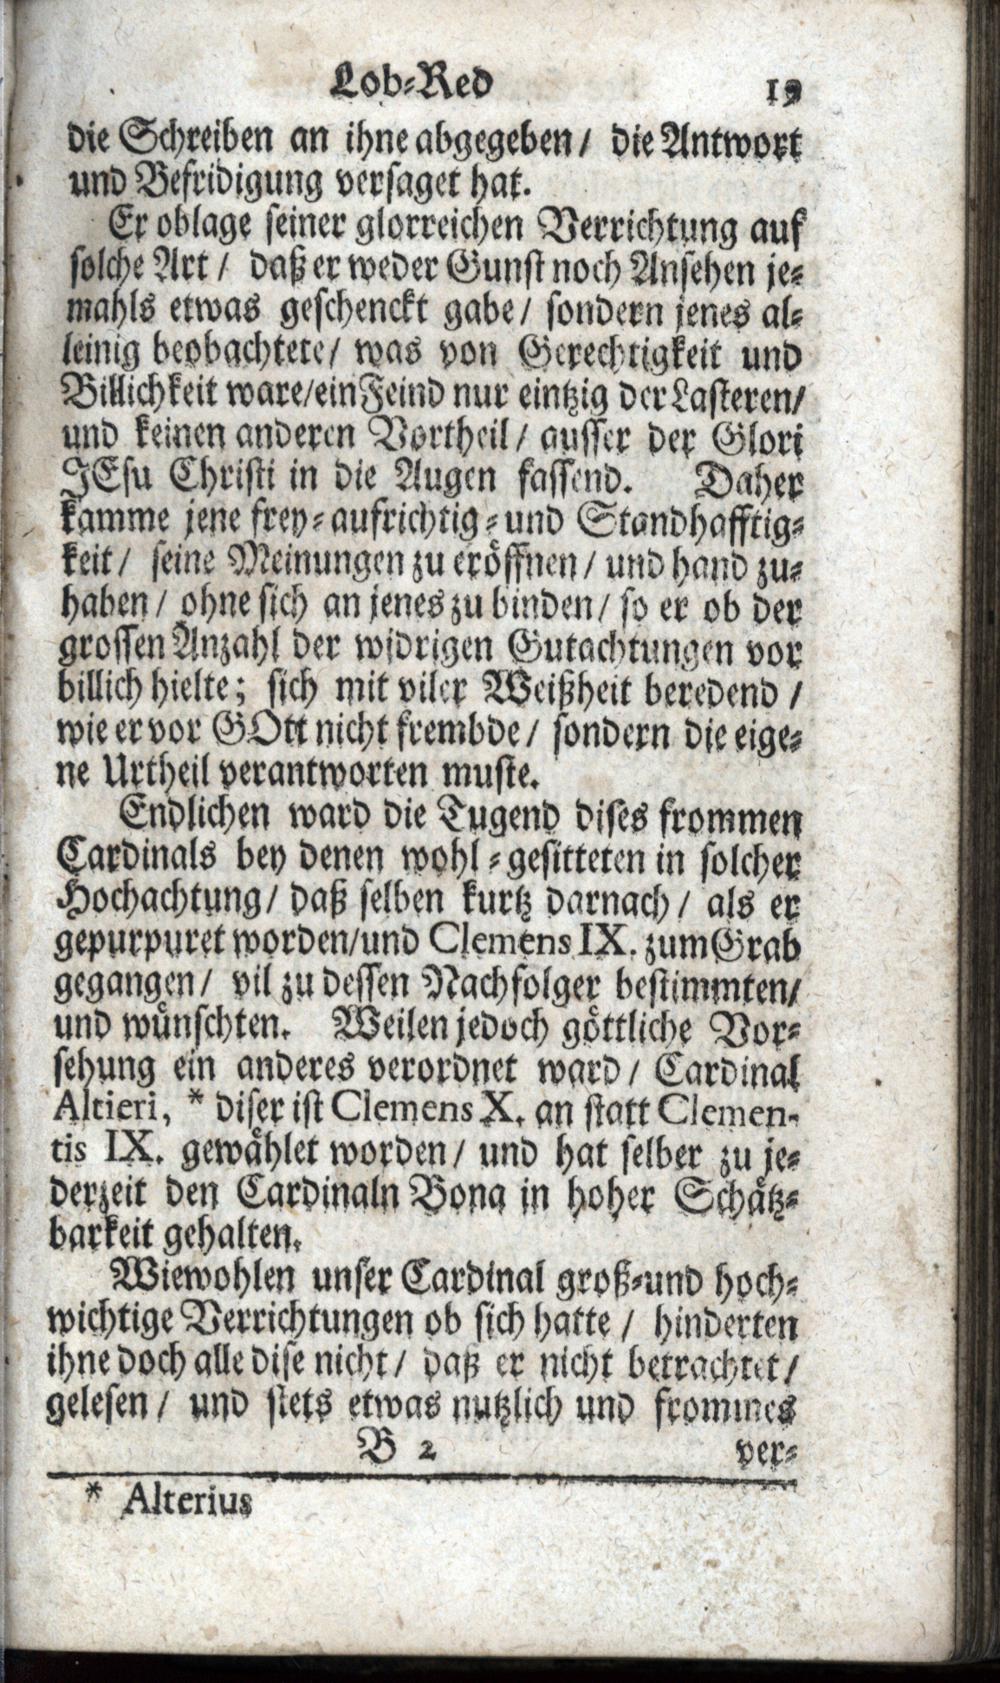 Lob-Red 19
die Schreiben an ihne abgegeben / die Antwort
und Befridigung versaget hat.
Er oblage seiner glorreichen Verrichtung auf
solche Art / daß er weder Gunst noch Ansehen je-
mahls etwas geschenckt gabe / sondern jenes al-
leinig beobachtete / was von Gerechtigkeit und
Billichkeit ware / ein Feind nur eintzig der Lasteren /
und keinen anderen Vortheil / ausser der Glori
JEsu Christi in die Augen fassend. Daher
kamme jene frey- aufrichtig- und Standhafftig-
keit / seine Meinungen zu eröffnen / und hand zu-
haben / ohne sich an jenes zu binden / so er ob der
grossen Anzahl der widrigen Gutachtungen vor
billich hielte; sich mit viler Weißheit beredend /
wie er vor GOtt nicht frembde / sondern die eige-
ne Urtheil verantworten muste.
Endlichen ward die Tugend dises frommen
Cardinals bey denen wohl-gesitteten in solcher
Hochachtung / daß selben kurtz darnach / als er
gepurpuret worden / und Clemens IX. zum Grab
gegangen / vil zu dessen Nachfolger bestimmten /
und wünschten. Weilen jedoch göttliche Vor-
sehung ein anderes verordnet ward / Cardinal
Altieri, * diser ist Clemens X. an statt Clemen-
tis IX. gewählet worden / und hat selber zu je-
derzeit den Cardinaln Bona in hoher Schätz-
barkeit gehalten.
Wiewohlen unser Cardinal groß- und hoch-
wichtige Verrichtungen ob sich hatte / hinderten
ihne doch alle dise nicht / daß er nicht betrachtet /
gelesen / und stets etwas nutzlich und frommes
B 2 ver-
* Alterius